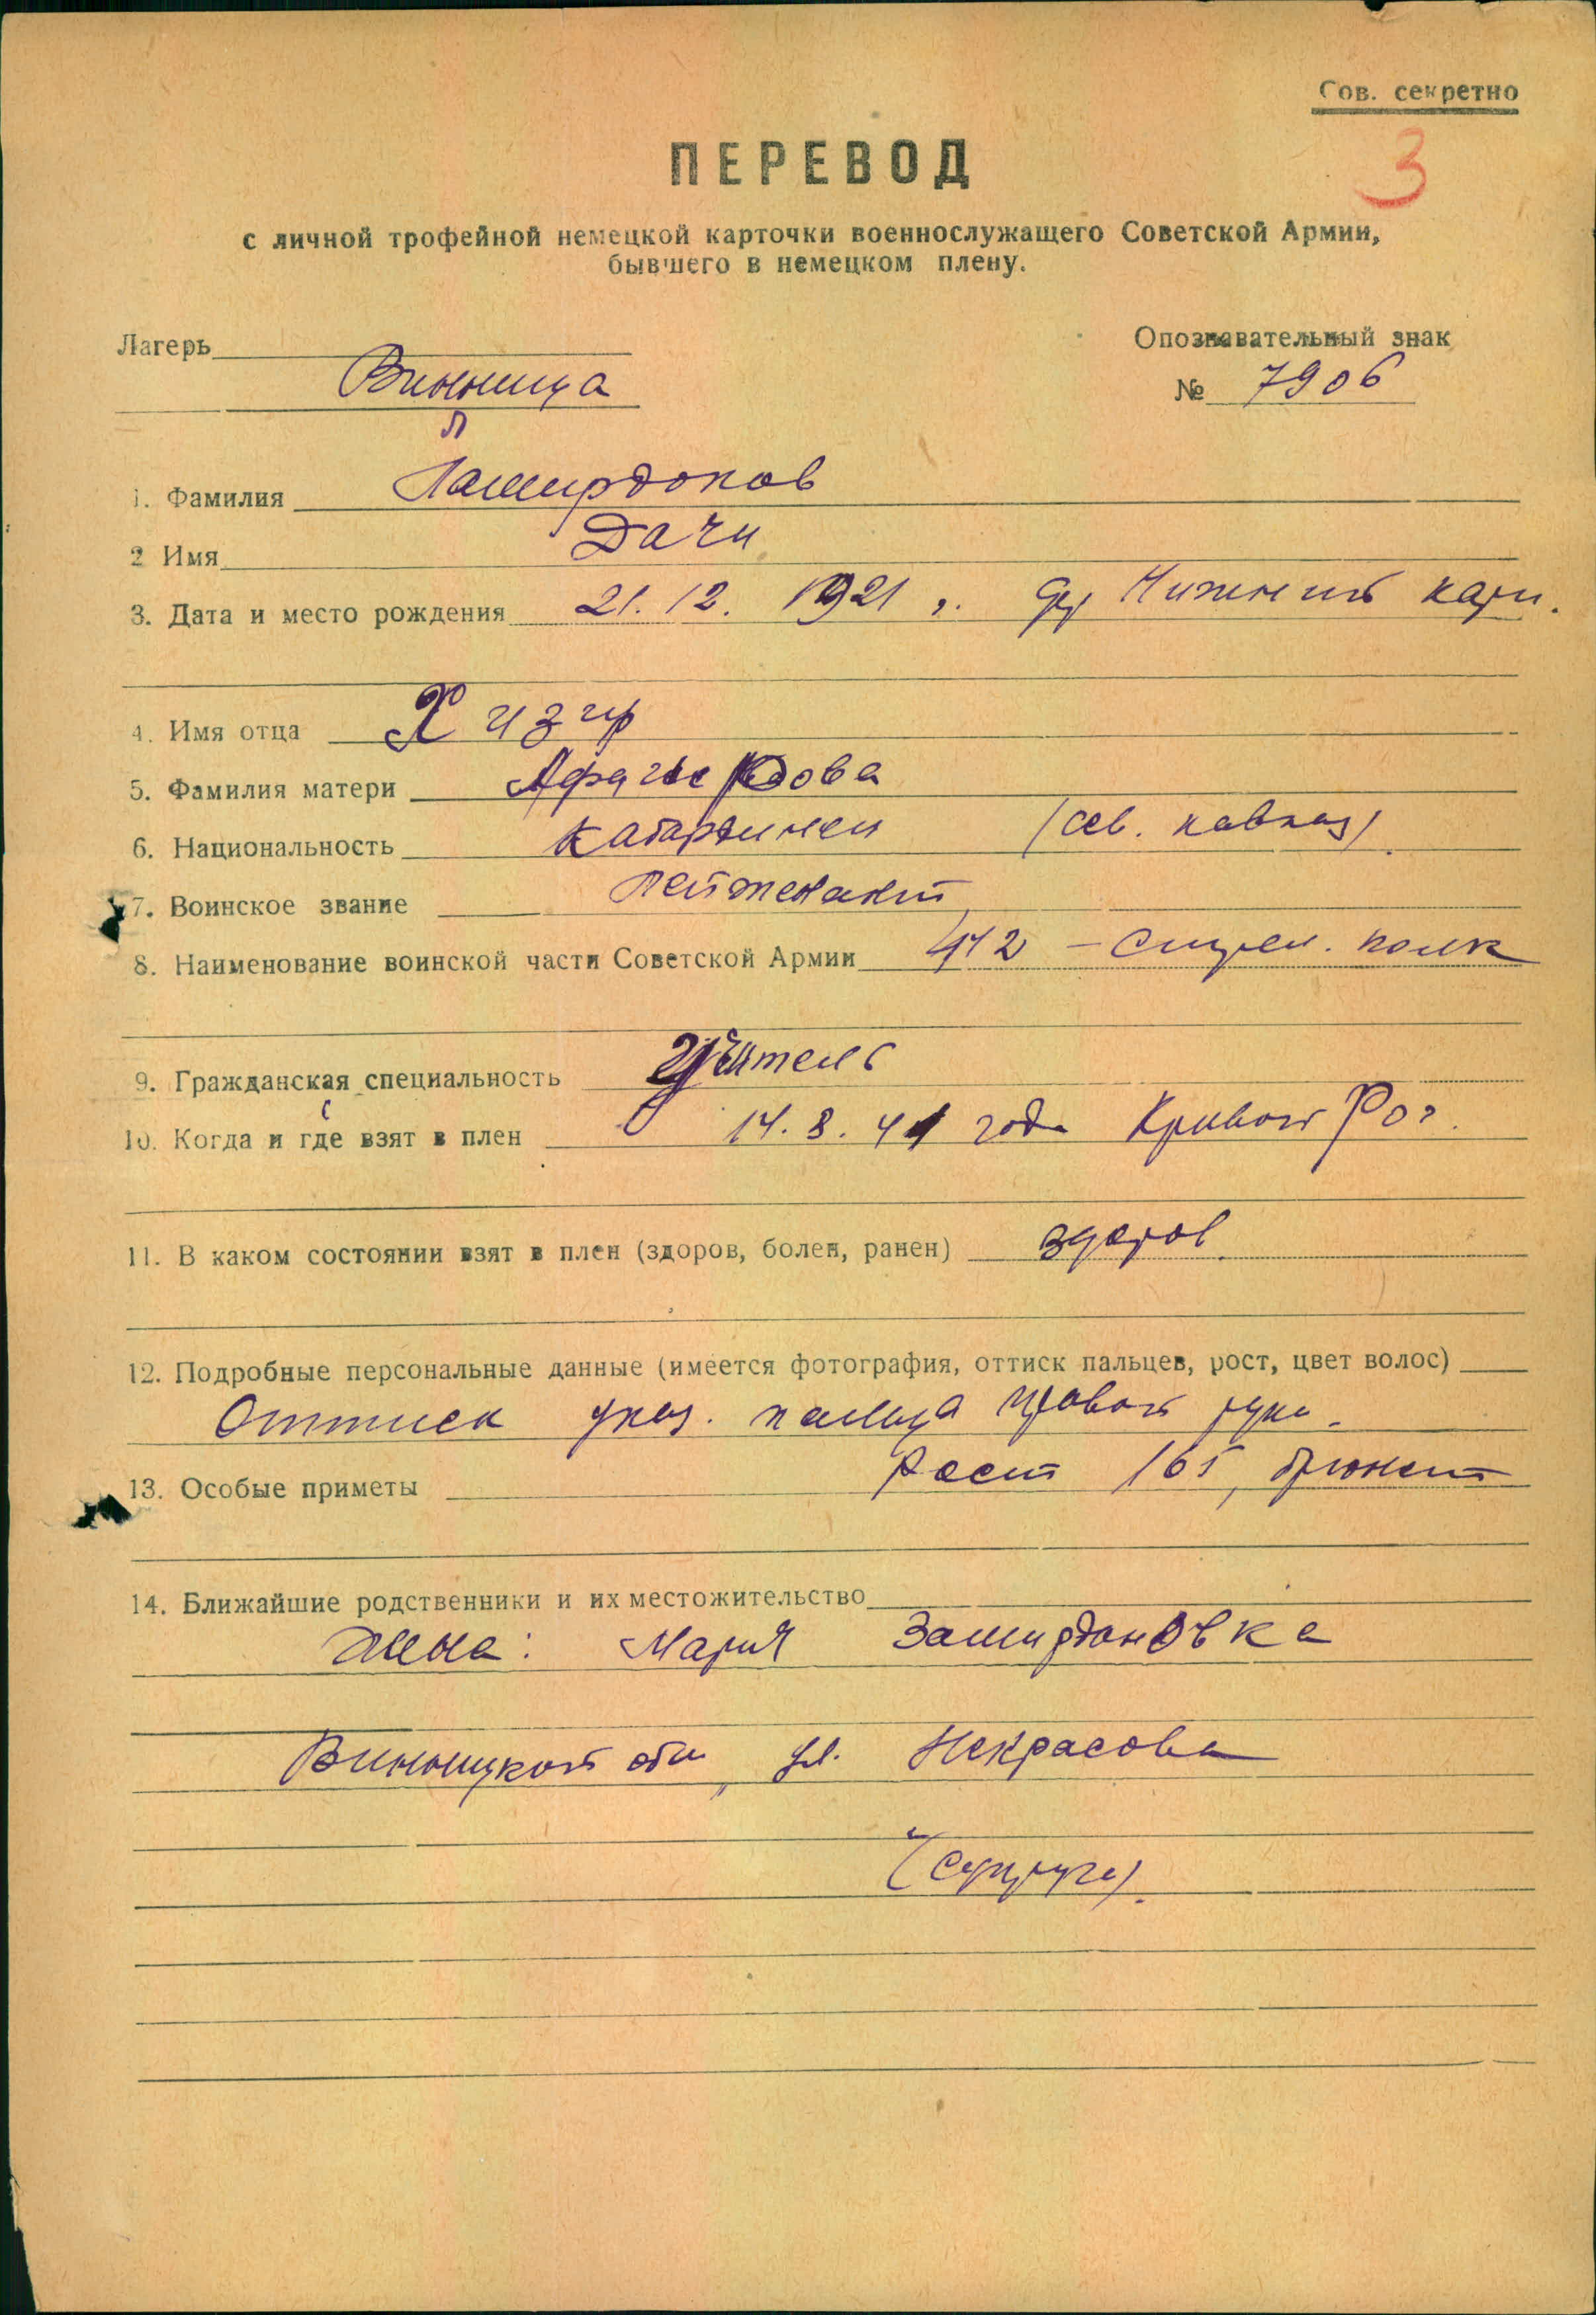 Сов. секретно
3
ПЕРЕВОД
с личной трофейной немецкой карточки военнослужащего Советской Армии,
бывшего в немецком плену.
Лагерь
Опознавательный знак
Винница
№ 7906
Л
1. Фамилия Лаширдопов
2 Имя Дачи
3. Дата и место рождения 21. 12. 1921 г. др Нижний
4. Имя отца Хизир
5. Фамилия матери
6. Национальность Кабардинец (сев. кавказ).
7. Воинское звание Лейтенант
8. Наименование воинской части Советской Армии 412 – стрел. полк
9. Гражданская специальность Учитель
10. Когда и где взят в плен 14. 8. 41 года Кривой Рог.
11. В каком состоянии взят в плен (здоров, болен, ранен) здоров.
12. Подробные персональные данные (имеется фотография, оттиск пальцев, рост, цвет волос)
Оттиск указ. пальца правой руки.
13. Особые приметы Рост 165, брюнет
14. Ближайшие родственники и их местожительство
Жена: Мария
Винницкой обл, ул. Некрасова
(супруга).